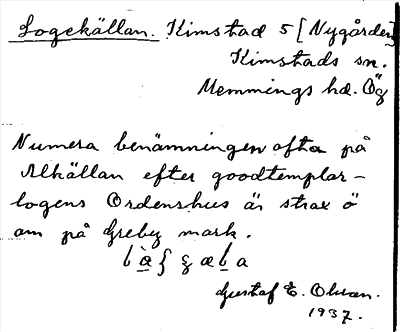 Logekällan. Kimstad 5 [Nygården]
Kimstads sn.
Memmings hd. Ög
Numera benämningen ofta på
Alkällan efter goodtemplar-
logens Ordenshus är strax ö
om på Greby mark.
Gustaf E. Olsson.
1937.